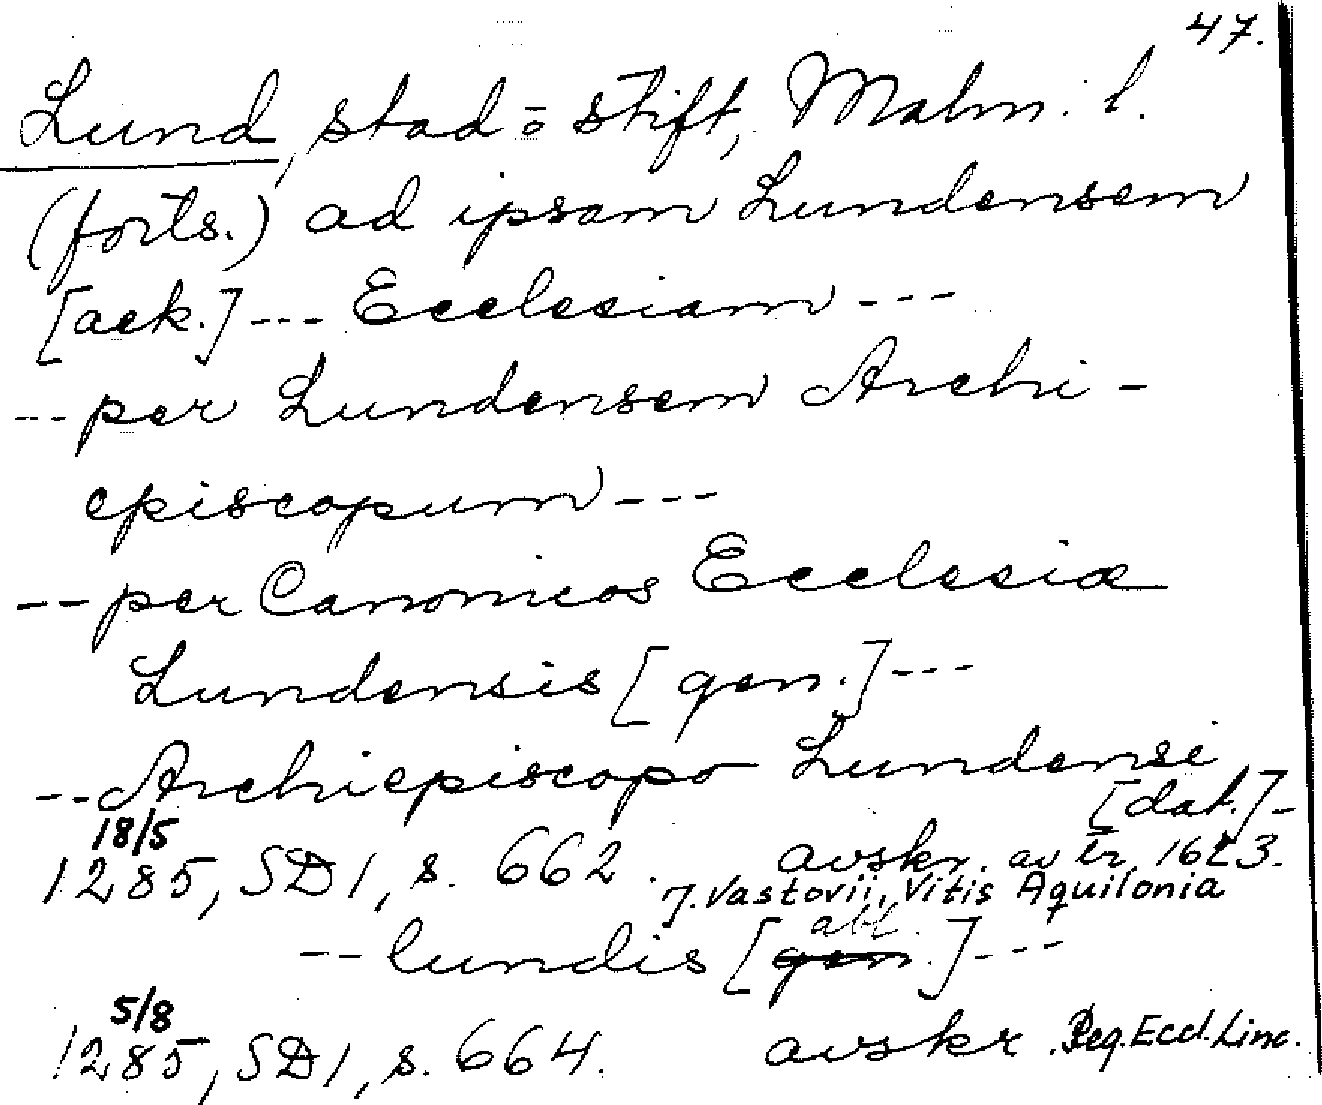 47.
Lund, stad o. stift, Malm. l.
(forts.) ad ipsam Lundensem
[ack.] --- Ecclesiam ---
-- per Lundensem Archi-
episcopum ---
-- per Canonicos Ecclesiæ
Lundensis [gen.] ---
-- Archiepiscopo Lundensi
[dat.] -
18/5
1285, SD 1, s. 662. avskr. av tr. 1623.
J. Vastovii, Vitis Aquilonia
abl.
-- lundis [gen.] ---
5/8
1285, SD 1, s. 664. avskr. Reg. Eccl. Linc.